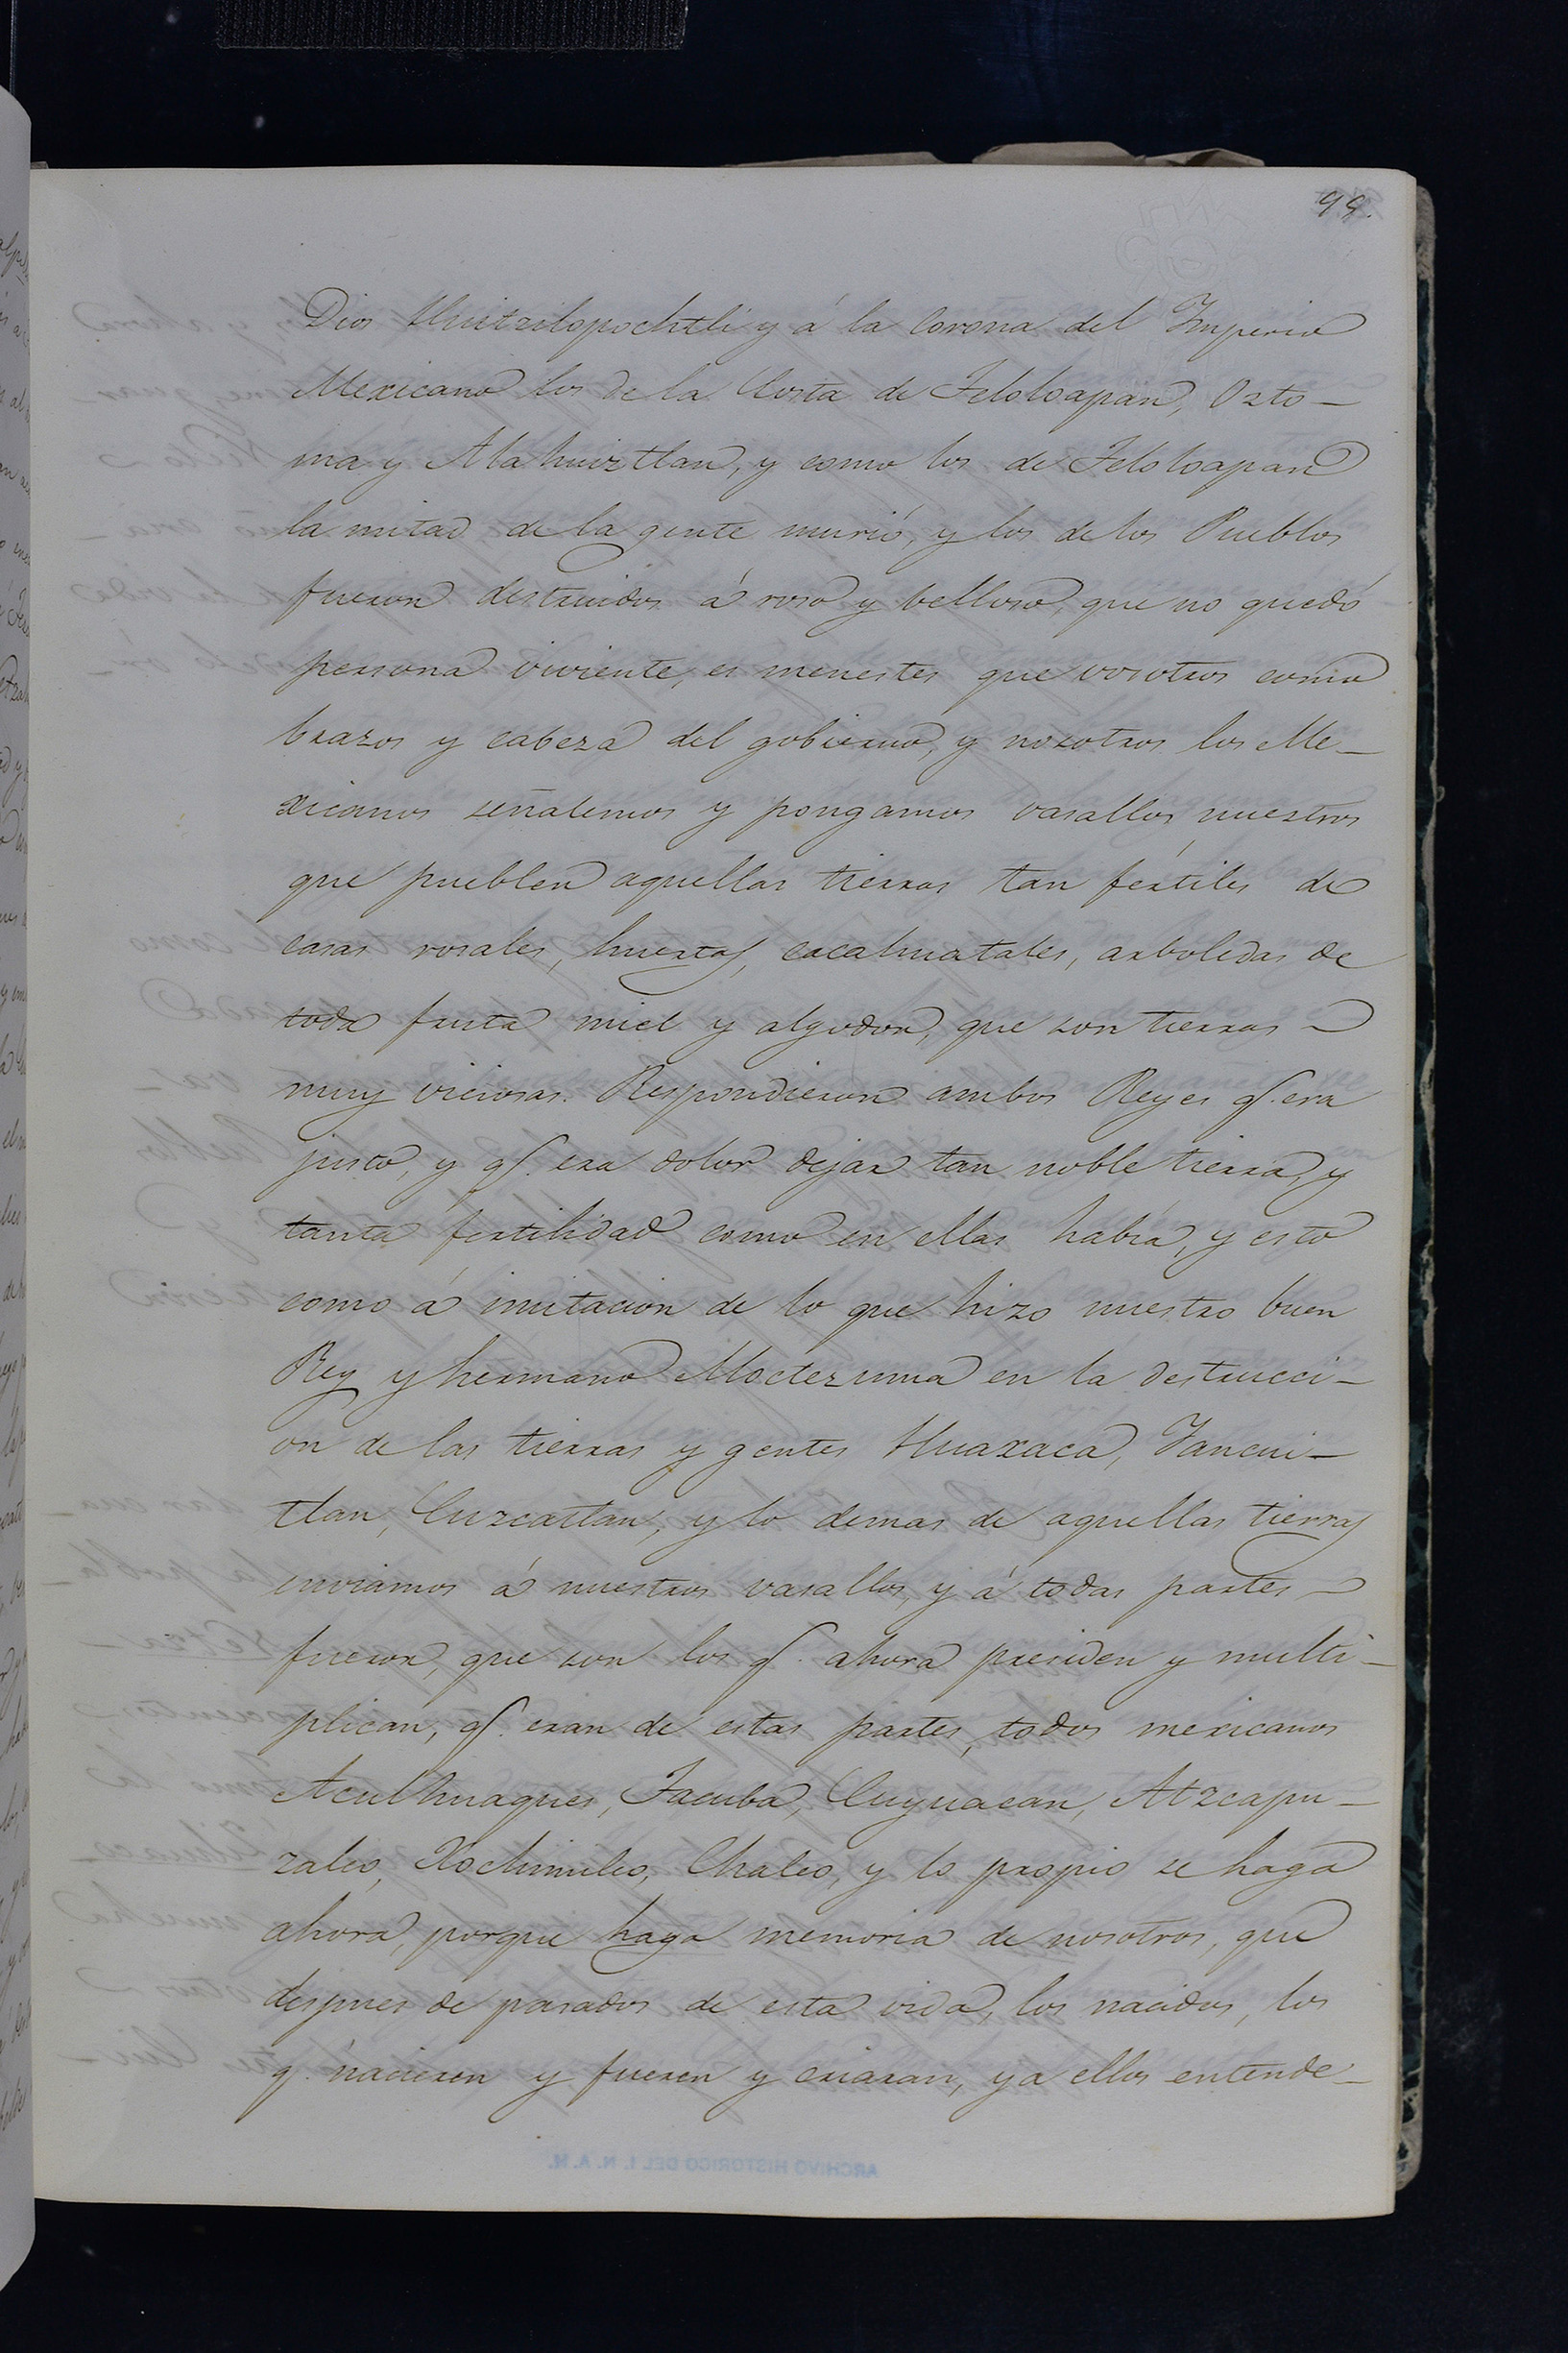 98.
Dios Huitzilopochtli y á la Corona del Imperio
Mexicano los de la Costa de Teloloapan, Ozto-
ma y Alahuiztlan, y como los de Teloloapan
la mitad de la gente murió, y los de los Pueblos
fueron destruidos á roso y belloso, que no quedó
persona viviente, es menester que vosotros como
brazos y cabeza del gobierno, y nosotros los Me-
xicanos señalemos y pongamos vasallos nuestros
que pueblen aquellas tierras tan fértiles de
casas rosales, huertas, cacahuatales, arboledas de
toda fruta miel y algodon, que son tierras
muy viciosas. Respondieron ambos Reyes q. era
justo, y q. era dolor dejar tan noble tierra, y
tanta fertilidad como en ellas habia, y esto
como á imitacion de lo que hizo nuestro buen
Rey y hermano Moctezuma en la destrucci-
on de las tierras y gentes Huaxaca, Yancui-
tlan, Cuzcattan, y lo demas de aquellas tierras
enviamos á nuestros vasallos, y á todas partes
fueron, que son los q. ahora presiden y multi-
plican, q. eran de estas partes, todos mexicanos
Aculhuaques, Tacuba, Cuyuacan, Atzcapu-
zalco, Xochimilco, Chalco, y lo propio se haga
ahora, porque haga memoria de nosotros, que
despues de pasados de esta vida, los nacidos, los
q. nacieren y fueren y criaran, ya ellos entende-
ARCHIVO HISTORICO DEL I. N. A. H.